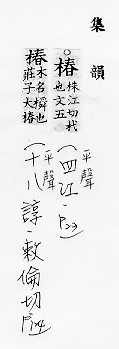 集韻
○樁株江切杙
也文五
平聲
(四江.P23)
椿木名橓也
莊子大椿
平聲
(十八諄.敕倫切